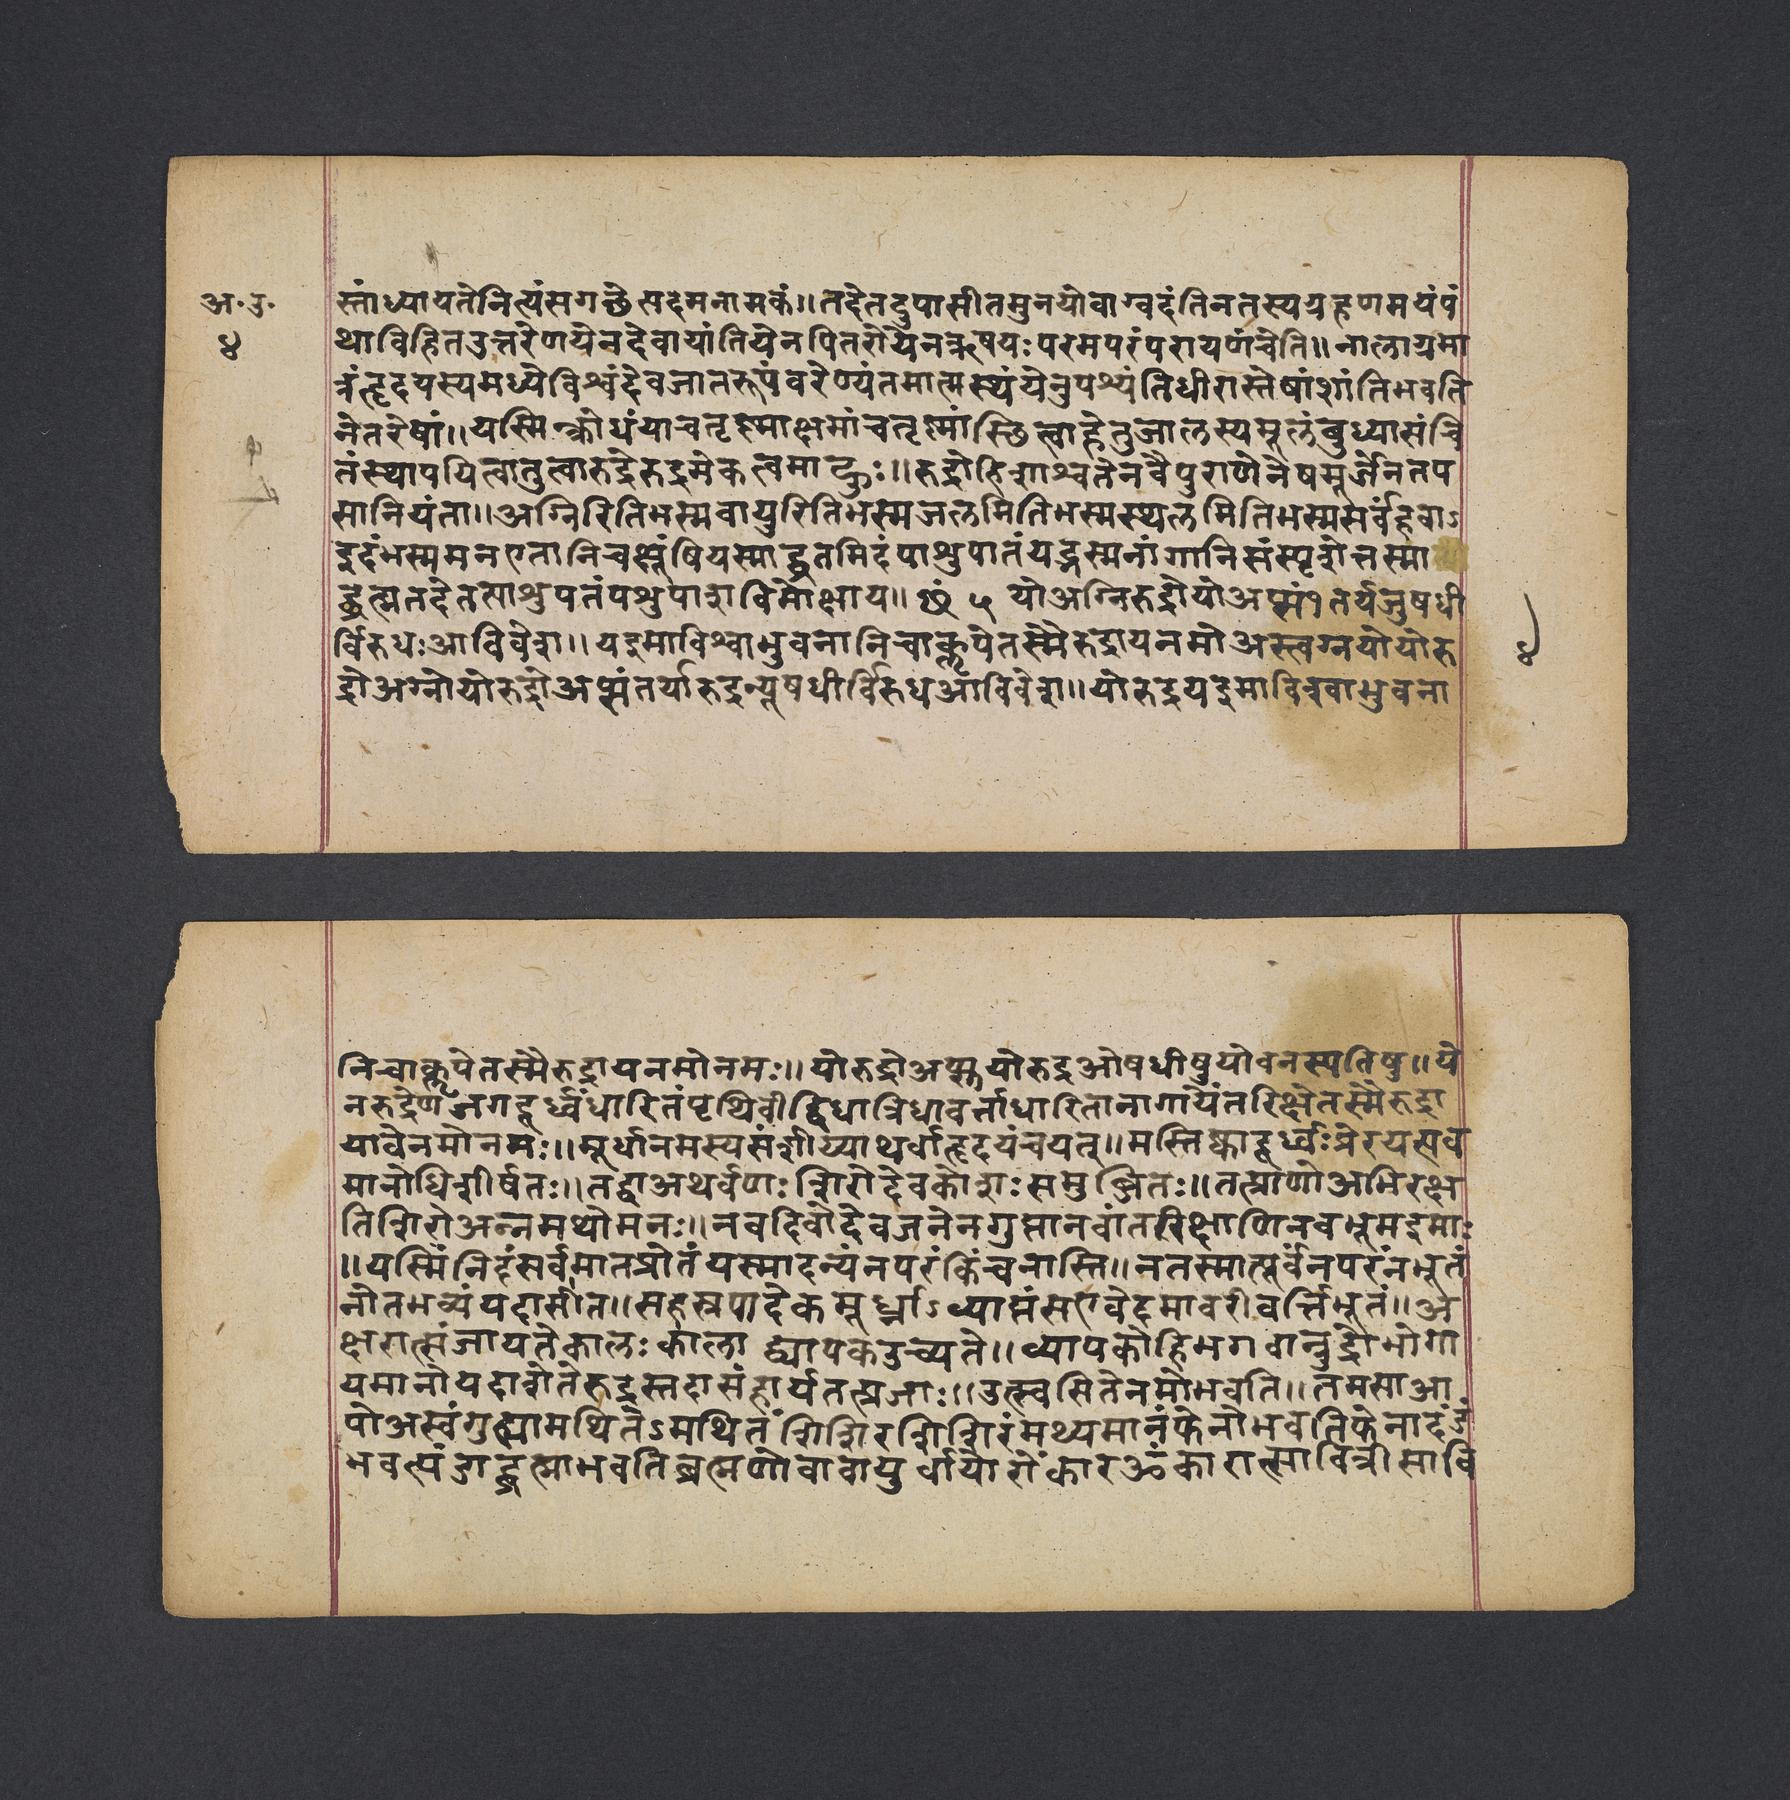 अ.उ.
४
स्तांध्यायतेनित्यंसगच्छेसहमनामकं॥तदेतदुपासीतमुनयोवाग्वदंतिनतस्ययह्हणमयंपं
थाविहितउत्तरेणयेनदेवायांतियेनपितरोयेनऋषयःपरमपरंपरायणंचेति॥नालाग्रमा
त्रंहृदयस्यमध्येविश्वंदेवजातरूपंवरेण्यंतमात्मस्थंयेनुपश्यंतिधीरास्तेषांशांतिभवति
नेतरेषां॥यस्मिन्क्रोधंयाचतृष्माक्षमांचतृष्मांस्छित्वाहेतुजालस्यमूलंबुध्यासंचि
तंस्थापयित्वातुत्वारुद्रेरुद्रमेकत्वमाहुः॥रुद्रोहिशाश्वतेनवैपुराणेनेषमूर्जेनतप
सानियंता॥अग्निरितिभस्मवायुरितिभस्मजलमितिभस्मस्थलमितिभस्मसर्वंहवाऽ
इदंभस्ममनएतानिचक्षूंषियस्माद्व्रतमिदंपाशुपातंयद्भस्मनांगानिसंस्पृशेत्तस्मा
द्ब्रह्मतदेतत्पाशुपतंपशुपाशविमोक्षाय॥ ५ योअग्निरुद्रोयोअप्स्वं१तर्यजुषधी
र्विरुधःआविवेश॥यइमाविश्वाभुवनानिचाकॢपेतस्मैरुद्रायनमोअस्त्वग्नयोयोरु
द्रोअग्नौयोरुद्रोअप्स्वंतर्यारुद्रन्यूषधीर्विरुधआविवेश॥योरुद्रयइमाविश्वाभुवना
४
निचाकॢपेतस्मैरुद्रायनमोनमः॥योरुद्रोअप्सुयोरुद्रओषधीषुयोवनस्पतिषु॥ये
नरुद्रेणजगदूर्ध्वंधारितंपृथिवीद्विधात्रिधावर्त्ताधारितानागायेंतरिक्षेतस्मैरुद्रा
यावेनमोनमः॥मूर्धानमस्यसंशीय्याथर्वाहृदयंचयत्॥मस्तिष्कादूर्ध्वःप्रेरयत्पव
मानोधिशीर्षतः॥तद्वाअथर्वणःशिरोदेवकोशःसमुब्जितः॥तत्प्राणोअभिरक्ष
तिशिरोअन्नमथोमनः॥नवदिवोदेवजनेनगुप्तानवांतरिक्षाणिनवभूमइमाः
॥यस्मिंनिदंसर्वमोतप्रोतंयस्मादन्यंनपरंकिंचनास्ति॥नतस्मात्पूर्वंनपरंनभूतं
नोतभव्यंयदासीत॥सहस्रपादेकमूर्ध्नाऽव्याप्तंसएवेदमावरीवर्त्तिभूतं॥अ
क्षरात्संजायतेकालःकालाद्व्यापकउच्यते॥व्यापकोहिभगवान्रुद्रोभोगा
यमानोयदाशेतेरुद्रस्तदासंहार्यतत्प्रजाः॥उत्स्वसितेनमोभवति॥तमसाआ
पोअस्वंगुल्यामथितेऽमथितंशिशिरशिशिरंमथ्यमानंफेनोभवतिफेनादंडं
भवत्यंडाद्ब्रह्माभवतिब्रह्मणोवावायुर्वायोरोंकारॐकारात्सावित्रीसावि